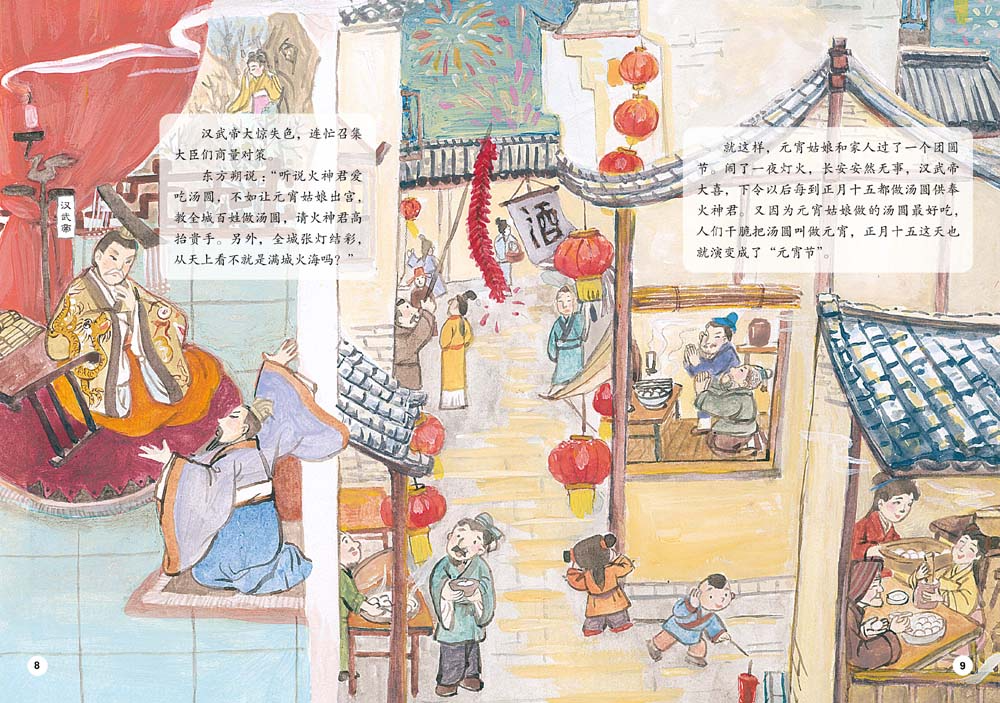 汉武帝大惊失色，连忙召集
大臣们商量对策。
东方朔说：“听说火神君爱
吃汤圆，不如让元宵姑娘出宫，
教全城百姓做汤圆，请火神君高
抬贵手。另外，全城张灯结彩，
从天上看不就是满城火海吗？”
汉武帝
酒
就这样，元宵姑娘和家人过了一个团圆
节。闹了一夜灯火，长安安然无事，汉武帝
大喜，下令以后每到正月十五都做汤圆供奉
火神君。又因为元宵姑娘做的汤圆最好吃，
人们干脆把汤圆叫做元宵，正月十五这天也
就演变成了“元宵节”。
8
9